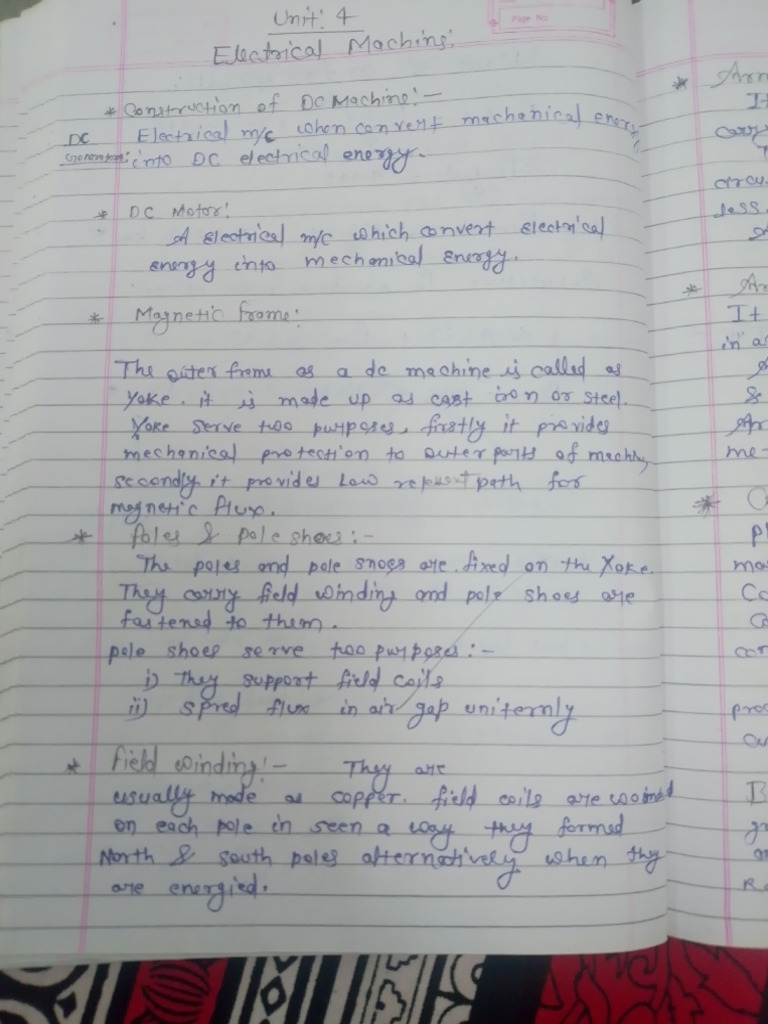 Unit: 4
Page No
Electrical Machins:
* Construction of DC Machine:-
DC Electrical m/c when convert mechanical energy
Generator: into DC electrical energy.
* DC Motor:
A electrical m/c which convert electrical
energy into mechanical energy.
* Magnetic frame:
The outer frame as a dc machine is called as
Yoke. it is made up as cast iron or steel.
Yoke serve two purposes, firstly it provides
mechanical protection to outer parts of
secondly it provides low path for
magnetic flux.
* Poles & pole shoes:-
The poles and pole shoes are fixed on the Yoke.
They carry field winding and pole shoes are
fastened to them.
pole shoes serve two purposes:-
i) They support field coils
ii) spred flux in air gap uniternly
* field winding:- They are
usually made as copper. field coils are
on each pole in seen a way they formed
North & south poles alternatively when thy
are energied.
*
It
carry
circu
less.
*
It
in a
&
me-
*
ma
Co